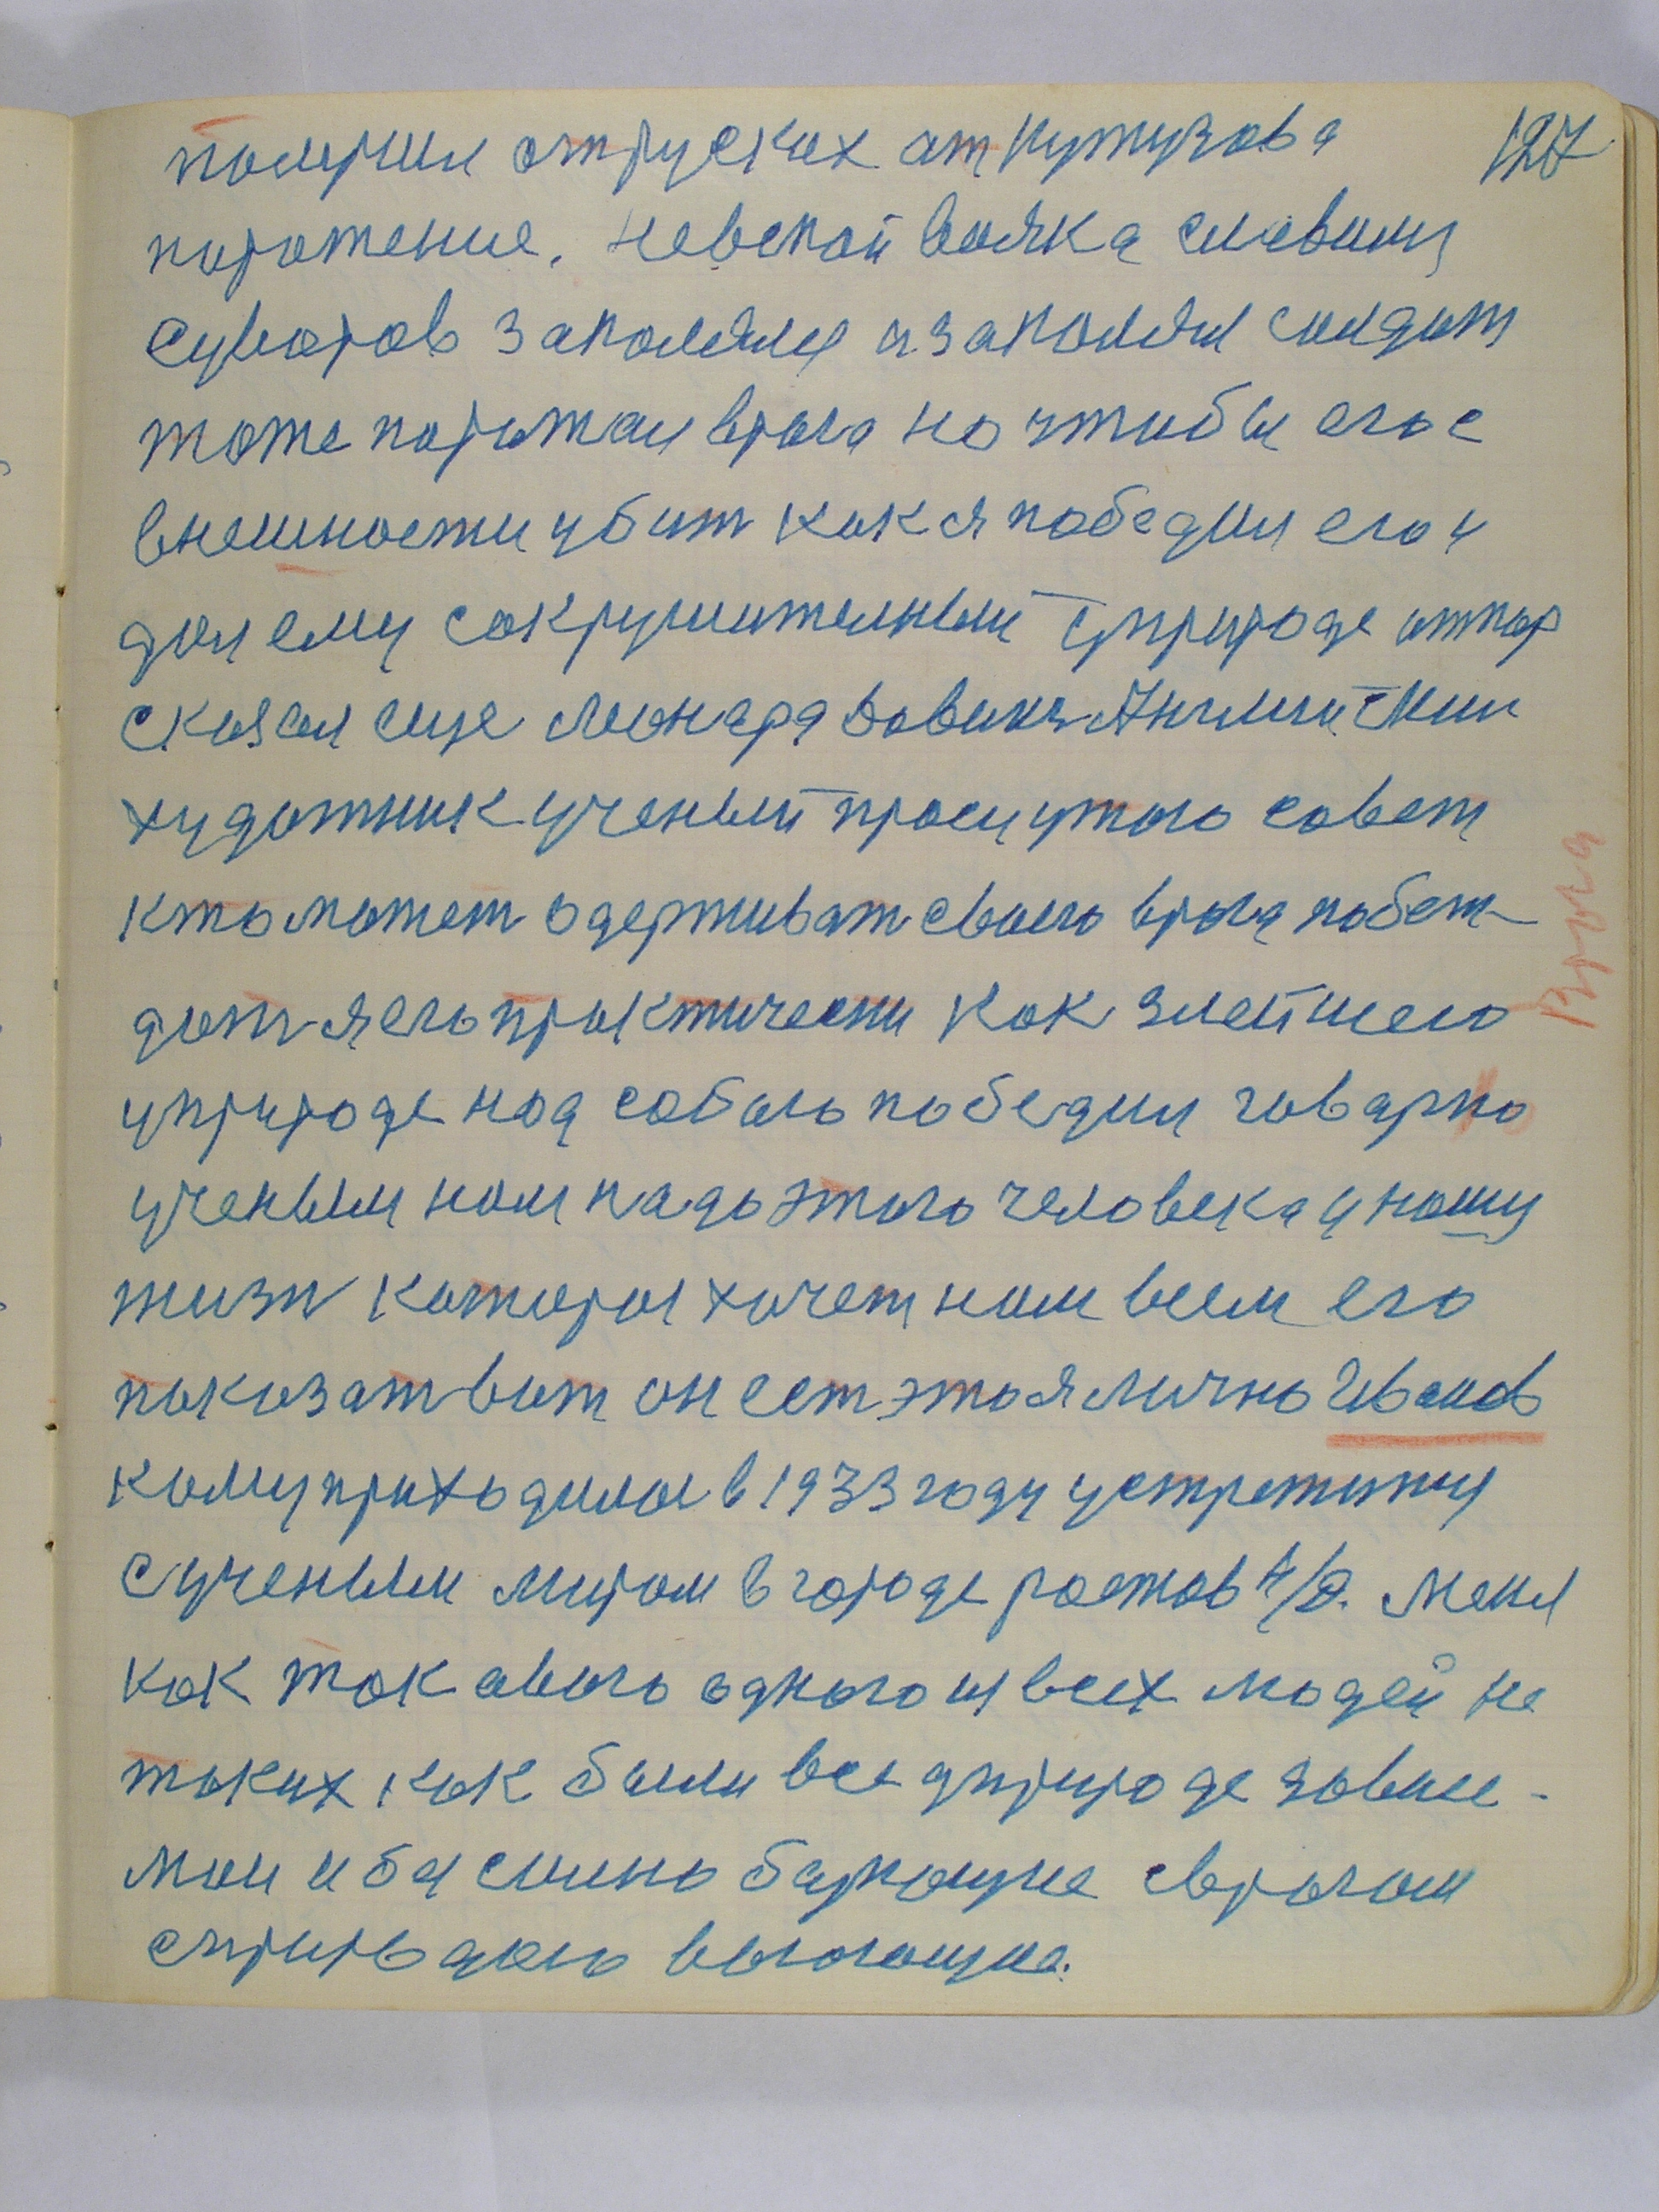 127
получил отруских ат Кутузова
поражение. Невской вояка славился
Суворов закалялся изакалял солдат
тоже поражал врага но чтобы его с
внешности убит как я победил его и
дал ему сокрушителный уприроде отпор
сказал еще Леонарда Давинч Английский
художник ученый прошу утого совет
кто может одерживат своего врага побеж-
дат я его практически как злейшего
уприроде над собою победил говарю
ученым нам надо этого человека у нашу
жизн каторая хочет нам всем его
показат вот он ест это я лично Иванов
Врага
каму приходилося в 1933 году устретится
сученым миром в городе ростов н/д. меня
как таковаго одного из всех людей не
таких как были все уприроде
сврагом